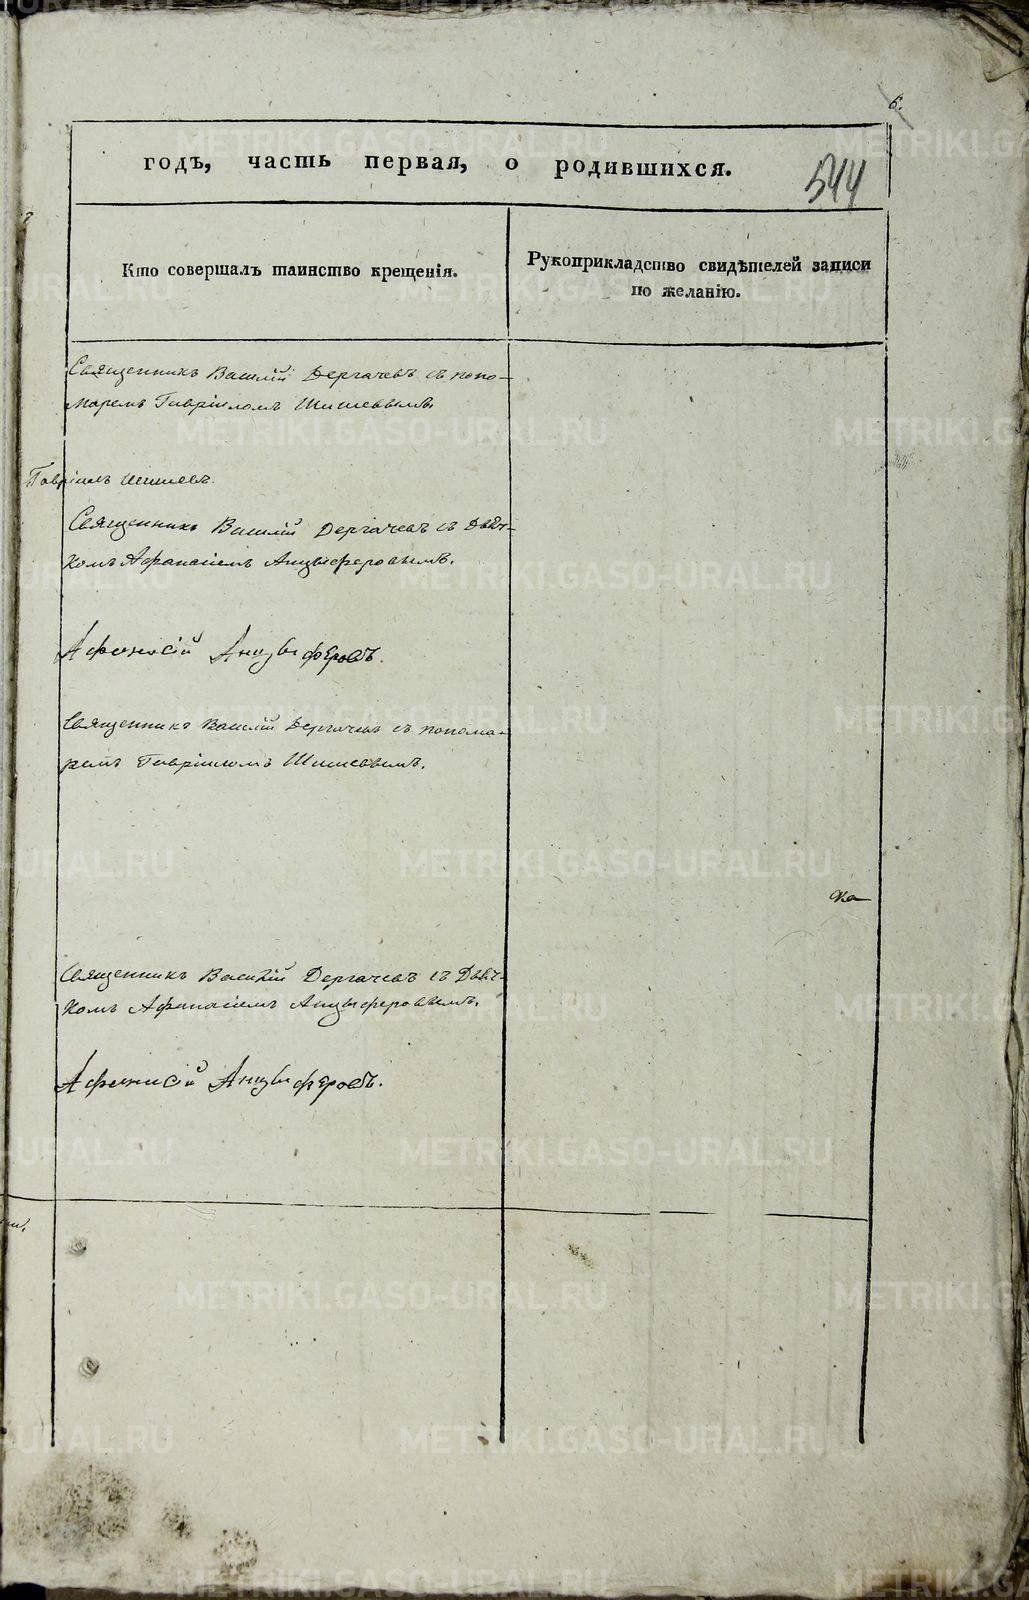 6.
годъ, часть первая, о родившихся.
544
Кто совершалъ таинство крещенія.
Рукоприкладство свидѣтелей записи
по желанію.
Священникъ Василій Дергачевъ съ поно-
маремъ Гавріиломъ Шишевымъ.
Гавріилъ Шишевъ.
Священникъ Василій Дергачевъ съ Дьяч-
комъ Афанасіемъ Анцыферовымъ.
Афонасій Анцыферовъ.
Священникъ Василій Дергачевъ съ понома-
ремъ Гавріиломъ Шишевымъ.
ка
Священникъ Василій Дергачевъ съ Дьяч-
комъ Афанасіемъ Анцыферовымъ.
Афонасій Анцыферовъ.
METRIKI.GASO-URAL.RU